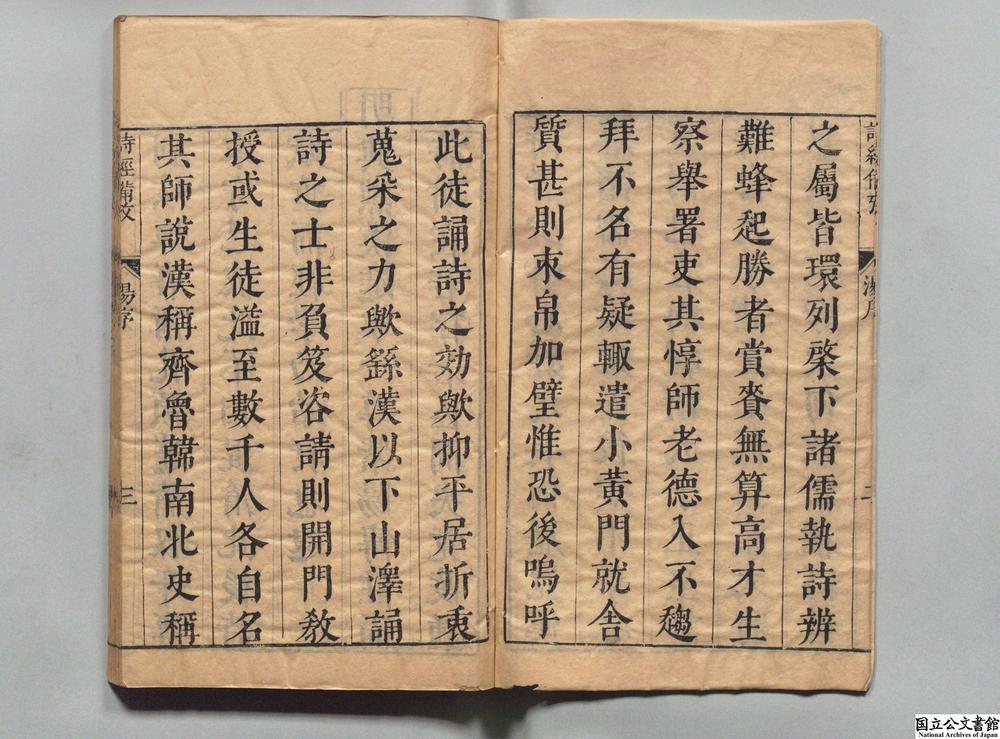 之屬皆環列棨下諸儒執詩辨
難蜂起勝者賞賚無算高才生
察舉署吏其惇師老德入不趨
拜不名有疑輙遣小黃門就舍
質甚則束帛加璧惟恐後嗚呼
此徒誦詩之効歟抑平居折衷
蒐采之力歟繇漢以下山澤誦
詩之士非負笈咨請則開門教
授或生徒溢至數千人各自名
其師說漢稱齊魯韓南北史稱
詩經備攷
湯序
二
詩經備攷
湯序
三
国立公文書館
National Archives of Japan